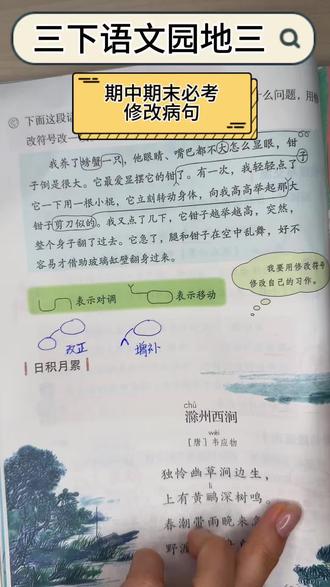 三下语文园地三
期中期末必考
修改病句
下面这段
什么问题，用修
改符号改一
我养了螃蟹一只，他眼睛、嘴巴都不大怎么显眼，钳
子倒是很大。它最爱显摆它的钳了。有一次，我轻轻点了
它一下用一根小棍，它立刻转动身体，向我高高举起那大
钳子剪刀似的。我又点了几下，它钳子越举越高，突然，
整个身子翻了过去。它急了，腿和钳子在空中乱舞，好不
容易才借助玻璃缸壁翻身过来。
子
我要用修改符号
修改自己的习作。
表示对调
表示移动
改正
增补
日积月累
chú
滁州西涧
wéi
［唐］韦应物
独怜幽草涧边生，
lí
上有黄鹂深树鸣。
春潮带雨晚来急
野渡